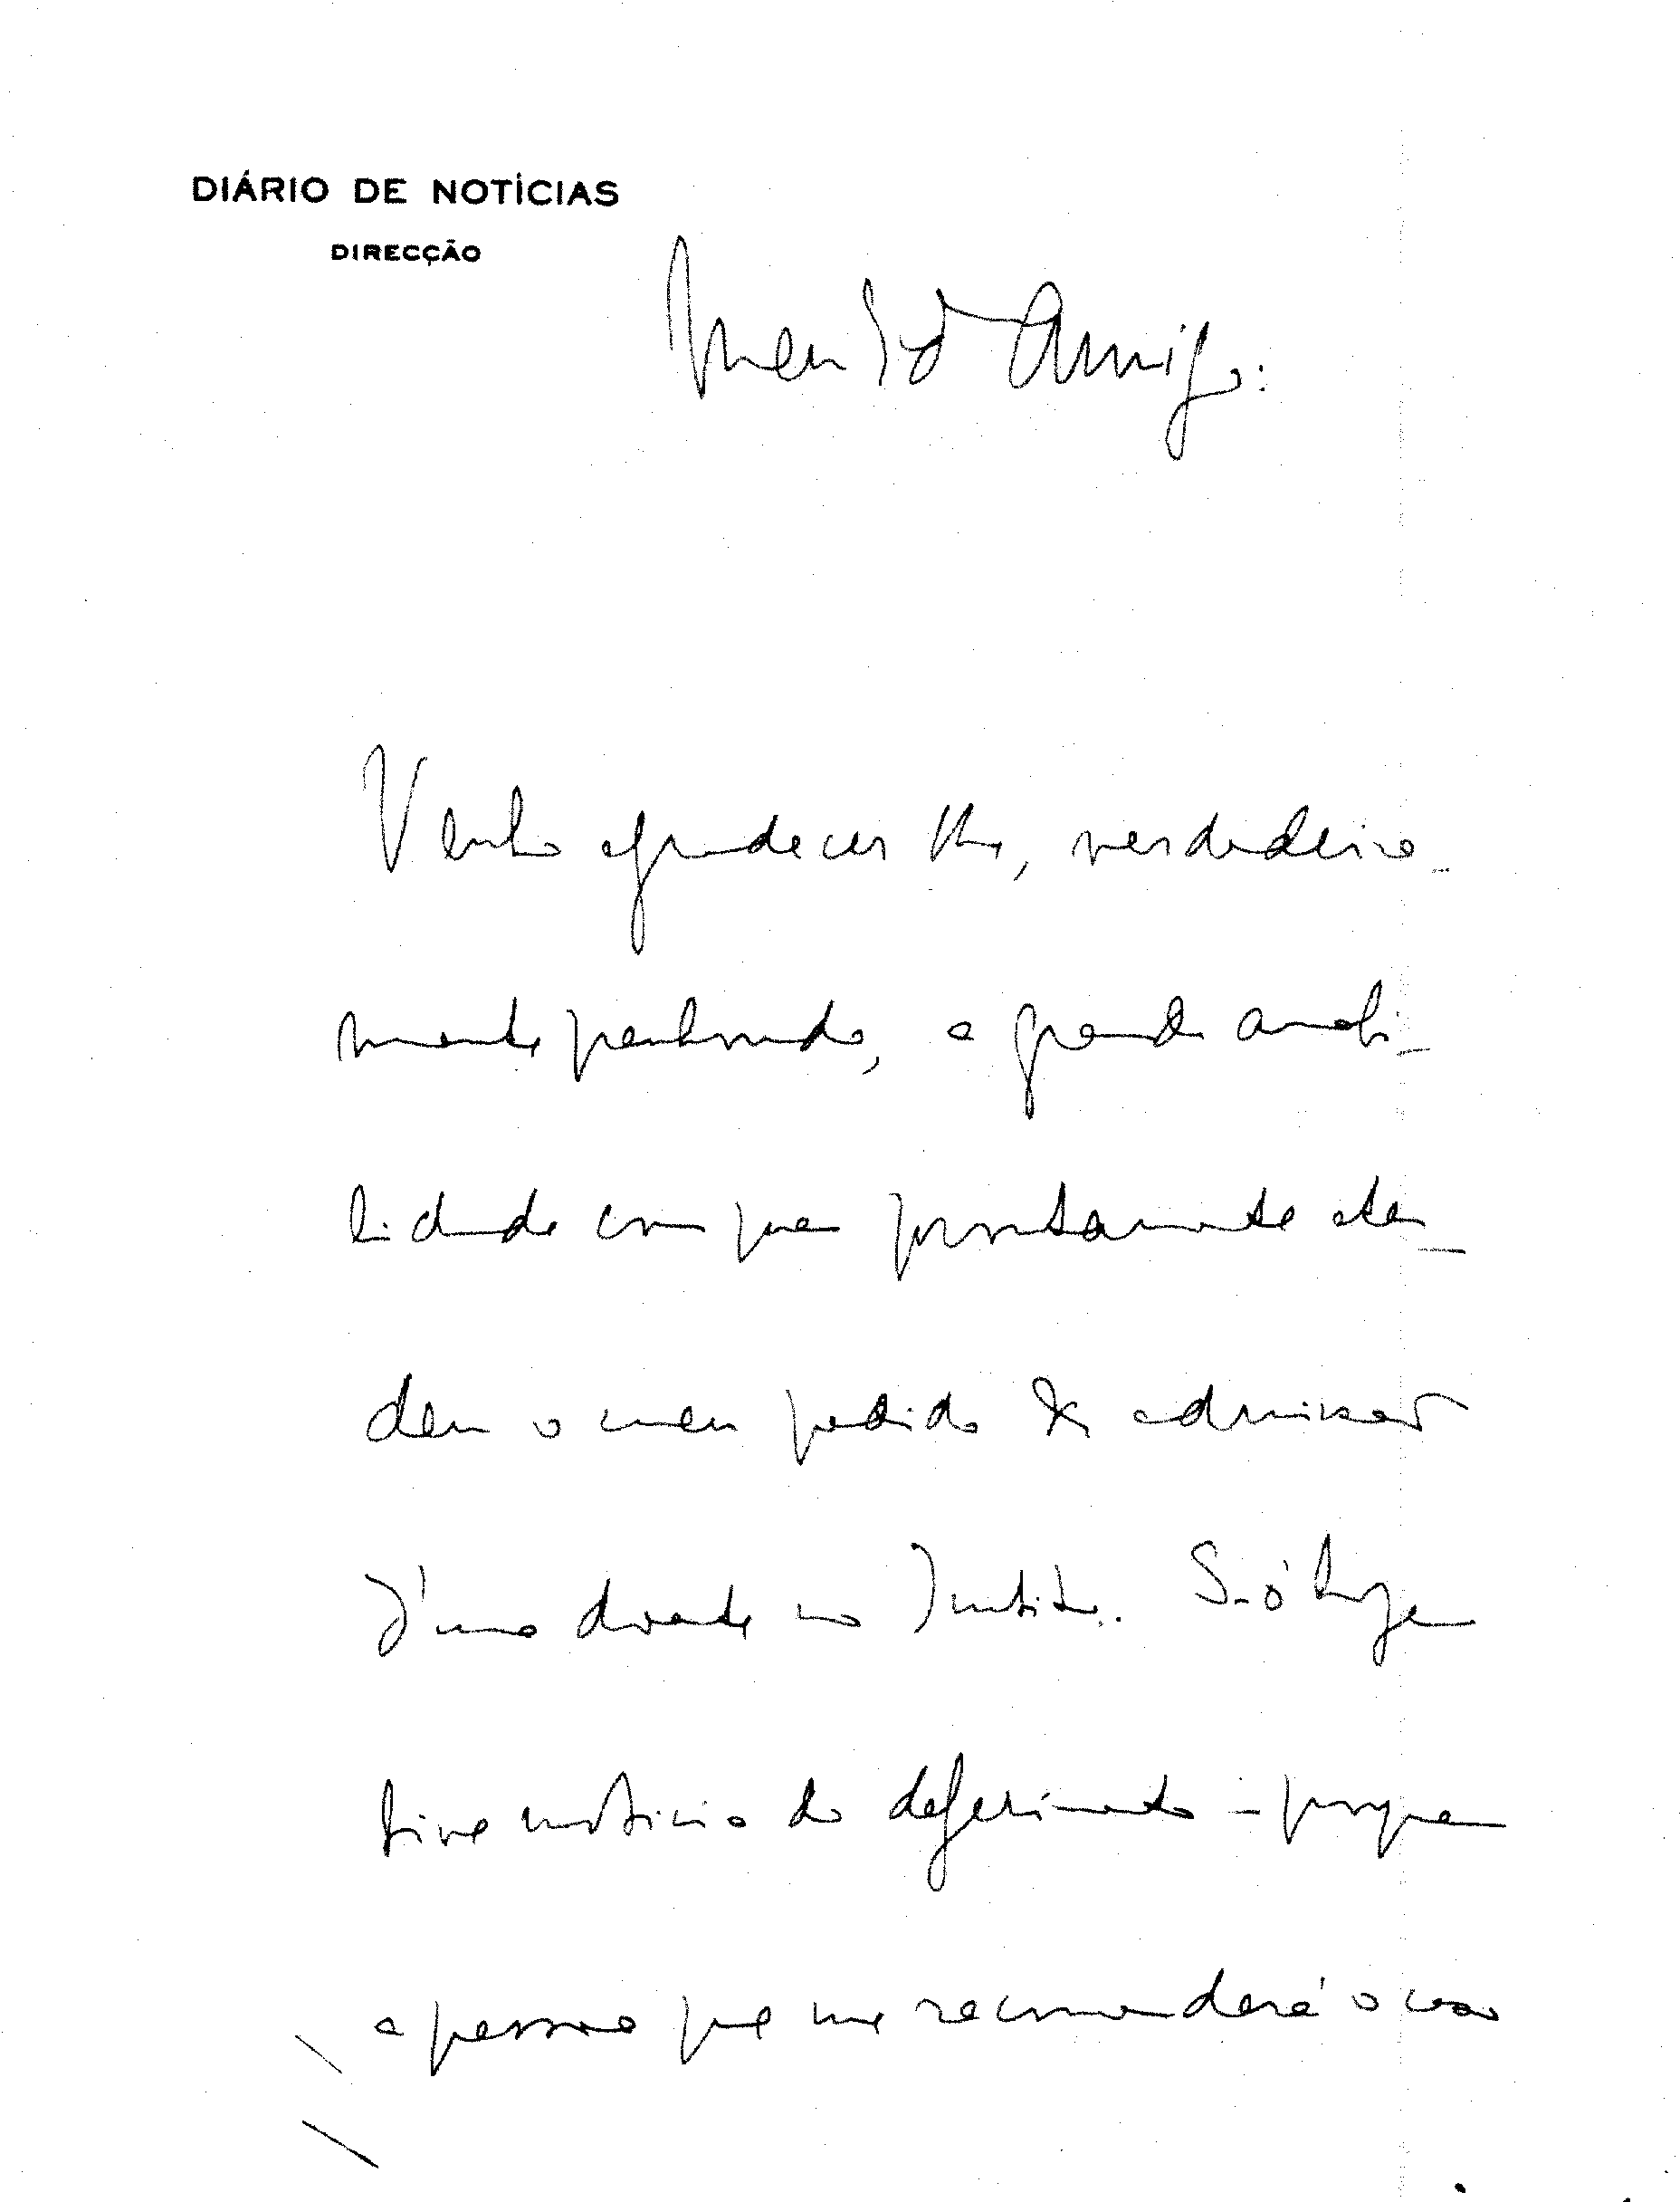 DIÁRIO DE NOTÍCIAS
DIRECÇÃO
Meu Amigo:
Venho agradecer lhe, verdadeira-
mente penhorado, a grande amabi-
lidade com que prontamente aten-
deu o meu pedido de admissão
d'uma doente no Instituto. Só hoje
tive notícia do deferimento - porque
a pessoa que me recomendara o caso